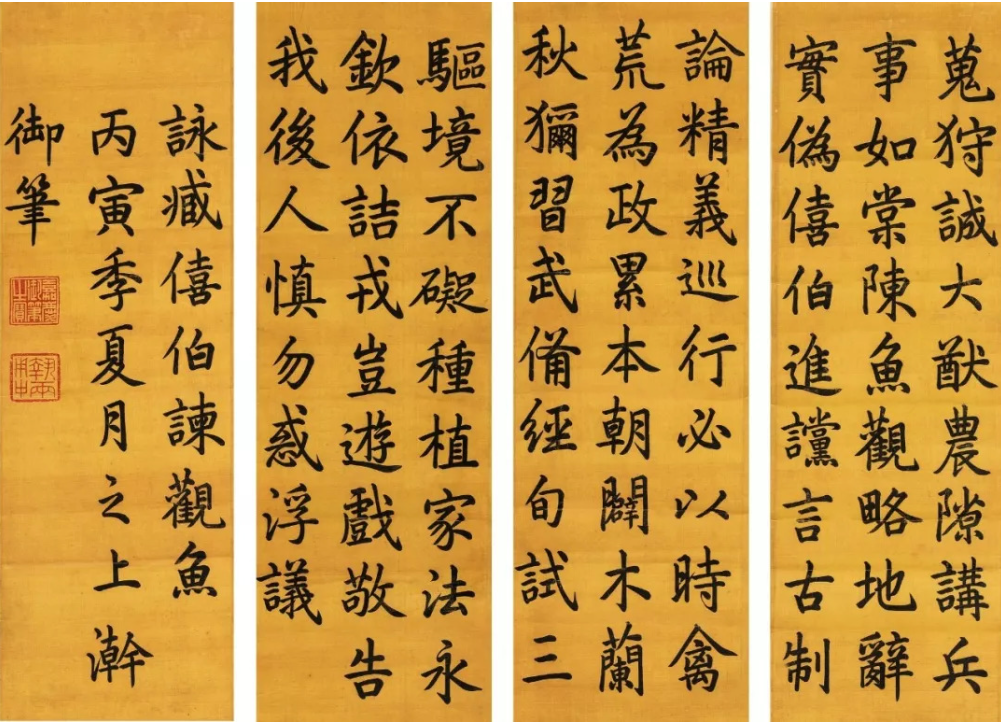 蒐狩誠大猷農隙講兵
事如棠陳魚觀略地辭
實偽僖伯進讜言古制
論精義巡行必以時禽
荒為政累本朝闢木蘭
秋獮習武備經旬試三
驅境不礙種植家法永
欽依詰戎豈遊戲敬告
我後人慎勿惑浮議
詠臧僖伯諫觀魚
丙寅季夏月之上澣
御筆
嘉慶御筆之寶
執兩用中